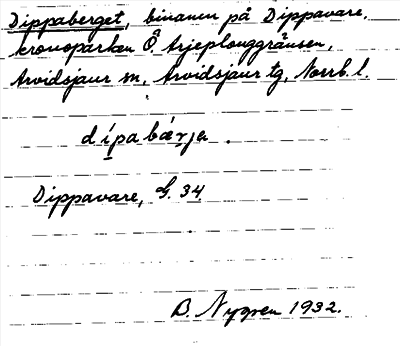 Dippaberget, binamn på Dippavare,
kronoparken Ö. Arjeplouggränsen,
Arvidsjaur sn, Arvidsjaur tg, Norrb. l.
dípabárja.
Dippavare, G. 34.
B. Nygren 1932.